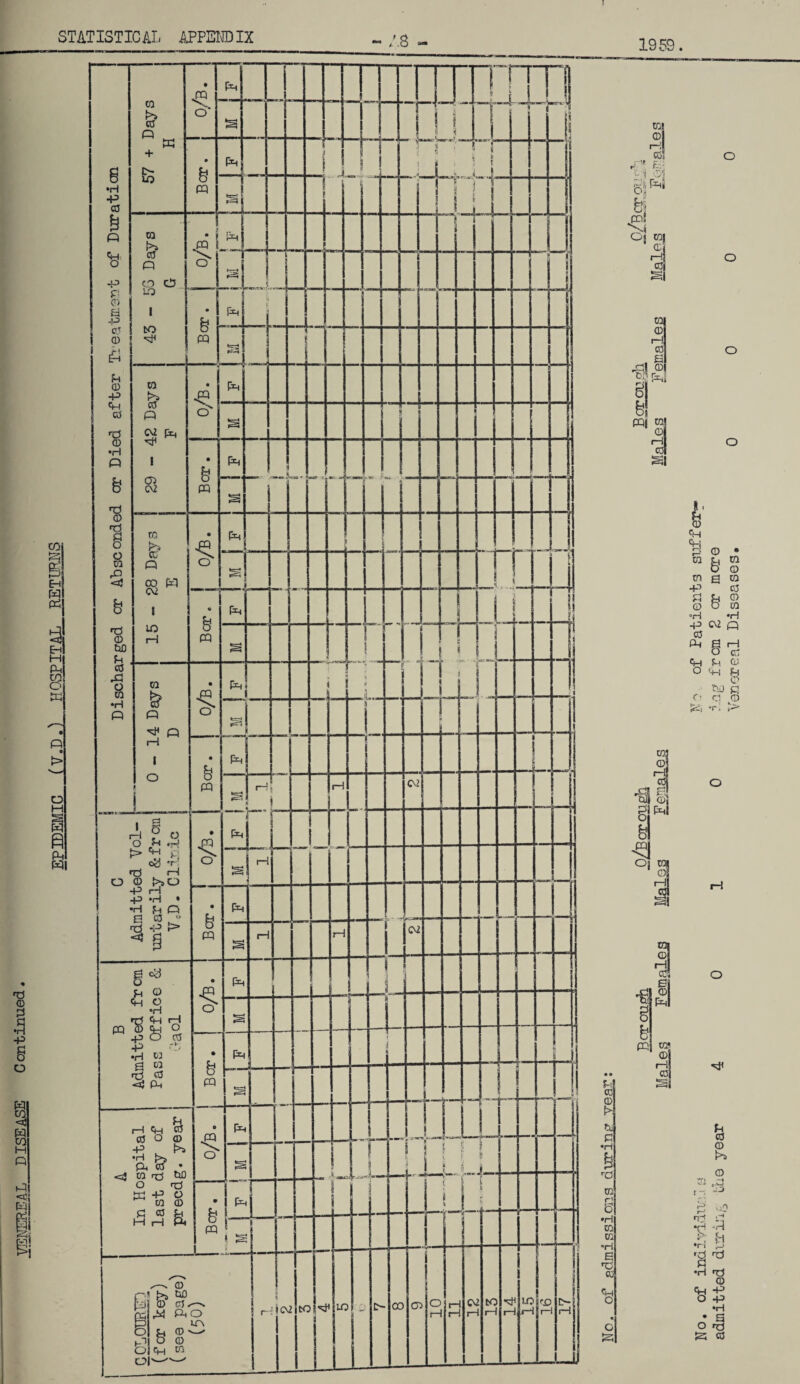 STATISTICAL APPENDIX
- 18 -
1959.
VENEREAL DISEASE Continued.
EPIDEMIC (V.D.) HOSPITAL RETURNS
COLOURED
(for key)
(see page)
(50)
A
In Hospital
last day of
precdg. year
B
Admitted from
Pass Office &
Gaol
C
Admitted Vol-
untarily & from
V.D. Clinic
Discharged or Absconded or Died after Treatment of Duration
0 - 14 Days
D
15 - 28 Days
E
29 - 42 Days
F
43 - 56 Days
G
57 + Days
H
Bor. O/B. Bor. O/B. Bor. O/B. Bor. O/B. Bor. O/B. Bor. O/B. Bor. O/B. Bor. O/B.
M F M F M F M F M F M F M F M F M F M F M F M F M F M F M F M F
1 1 1 1
2
3
4
5 1 1
6
7
8
9 2 2
10
11
12
13
14
15
16
17
No. of admissions during year:
Borough O/Borough Borough O/Borough
Males Females Males Females Males Females Males Females
No. of individuals
admitted during the year
4 0 1 0
No. of Patients suffer-
ing from 2 or more
Venereal Diseases.
0 0 0 0